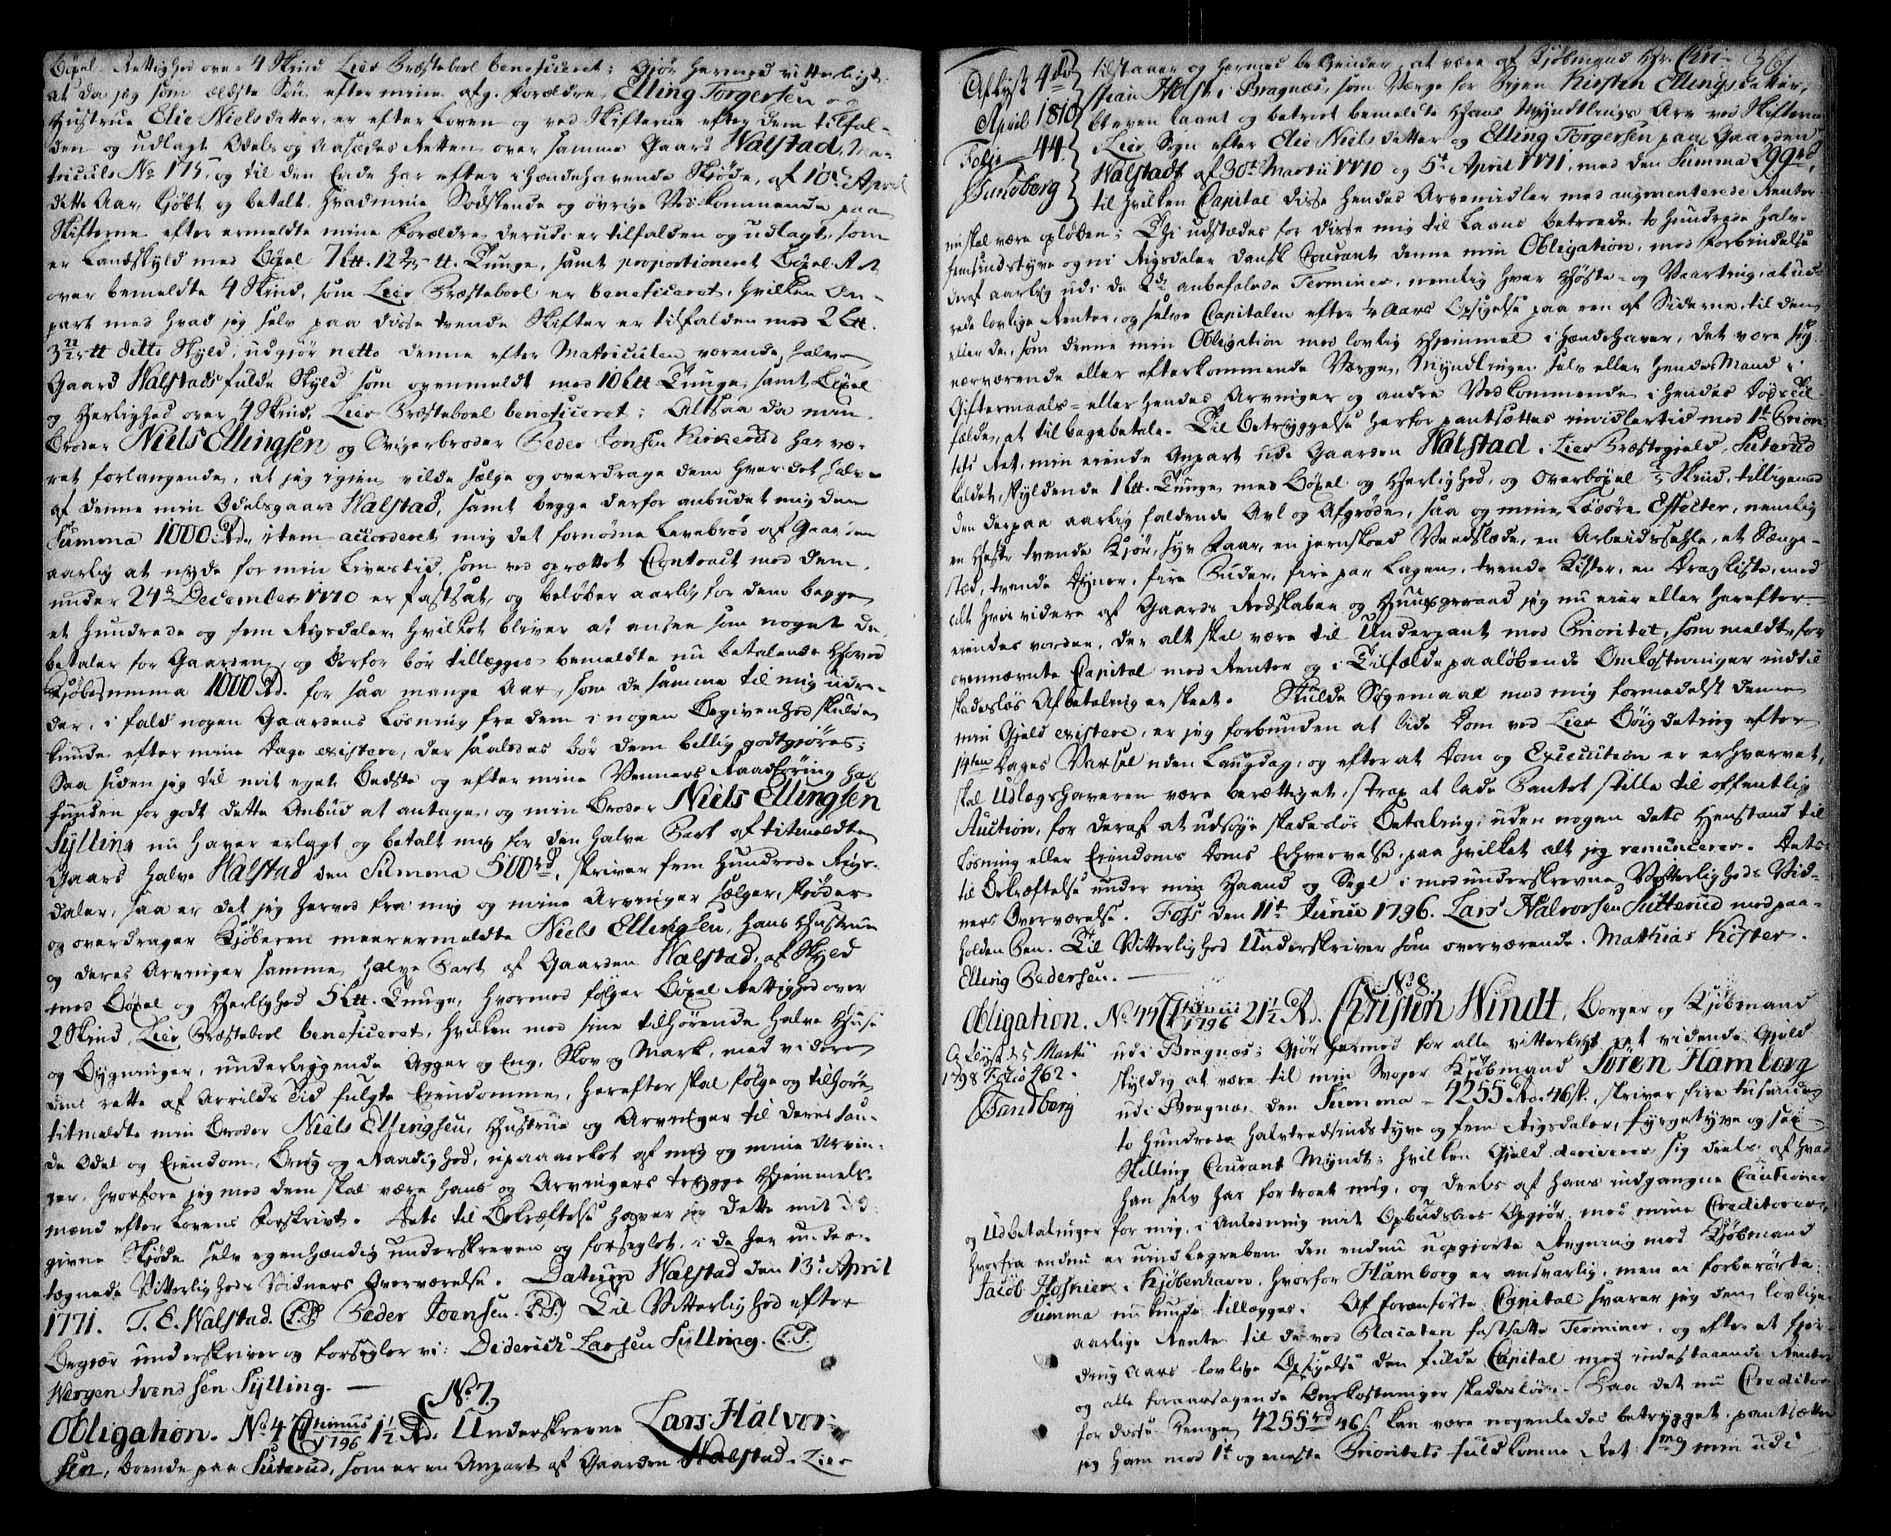 Böxel Rettighed over 4 Skind Lier Præsteboel beneficeret; Gjør hermed vitterligt,
at da jeg som ældste Søn efter mine afg. Forældre Elling Torgersen og
Hustrue Elie Nielsdatter, er efter Loven og ved Skifterne efter dem tilfal-
den og udlagt Odels og Aasædes Retten over samme Gaard Walstad, Ma-
triculs No 175, og til den Ende har efter ihændehavende Skjøde, af 10de April
dette Aar, kjøbt og betalt hvad mine Sødskende og øvrige Vedkommende paa
Skifterne efter ermeldte mine Forældre derudi er tilfalden og udlagt, som
er Landskyld med Böxel 7 Ltt. 12 tt. Tunge, samt proportioneret Böxel Ret
over bemeldte 4 Skind, som Lier Præsteboel er beneficeret, hvilken An-
part med hvad jeg selv paa disse tvende Skifter er tilfalden med 2 Ltt.
3 tt ditto Skyld, udgjør netto denne efter Matriculen værende halve
Gaard Walstads fulde Skyld som ovenmeldt med 10 Ltt Tunge, samt Böxel
og Herlighed over 4 Skind, Lier Præsteboel beneficeret; Altsaa da min
Broder Niels Ellingsen og Svigerbroder Peder Jonsen Kirkerud har væ-
ret forlangende, at jeg igjen vilde sælge og overdrage dem hver det halve
af denne min Odelsgaard Walstad, samt begge derfor anbudet mig den
Summa 1000 Rd. item accorderet mig det fornødne Levebrød af Gaarden
aarlig at nyde for min Livstid, som ved oprettet Contract med dem
under 24de December 1770 er fastsat, og beløber aarlig for dem begge
et Hundrede og fem Rigsdaler, hvilket bliver at ansee som noget de
betaler for Gaarden, og derfor bør tillægges bemeldte nu betalende Hoved
Kjøbesumma 1000 Rd. for saa mange Aar, som de samme til mig udre-
der, i fald nogen Gaardens Løsning fra dem i nogen Begivenhed skulde
kunde efter mine Dage existere, der saaledes bør dem billig godtgjøres;
Saa siden jeg til mit eget Bedste og efter mine Venners Raadføring har
funden for godt dette Anbud at antage, og min Broder Niels Ellingsen
Sylling nu haver erlagt og betalt mig for den halve Part af titmeldte
Gaard halve Walstad den Summa 500 rd, skriver fem Hundrede Rigs-
daler, saa er det jeg herved fra mig og mine Arvinger sælger, skjøder
og overdrager Kjøberen meerermeldte Niels Ellingsen, hans Hustrue
og deres Arvinger samme halve Part af Gaarden Walstad, af Skyld
med Böxel og Herlighed 5 Ltt. Tunge, hvormed følger Böxel Rettighed over
2 Skind, Lier Præsteboel beneficeret, hvilken med sine tilhørende halve Huse
og Bygninger, underliggende Agger og Eng, Skov og Mark, med videre
dens rette af Arrilds Tid fulgte Eiendomme, herefter skal følge og tilhøre
titmeldte min Broder Niels Ellingsen, Hustrue og Arvinger til deres san-
de Odel og Eiendom, Brug og Raadighed, upaaanket af mig og mine Arvin-
ger, hvorfore jeg med dem skal være hans og Arvingers trygge Hjemmels-
mænd efter Lovens Forskrivt. Dets til Bekræftelse haver jeg dette mit ud-
givne Skjøde selv egenhændig underskreven og forseglet, i de her under-
tegnede Vitterligheds Vidners Overværelse. Datum Walstad den 13de April
1771. T. E. Walstad. (L.S.) Peder Joensen. (L.S.) Til Vitterlighed efter
Begjær underskriver og forsegler vi: Diderich Larsen Sylling. (L.S.)
Wergen Svendsen Sylling. —
No 7.
Obligation. No 4 1796 1½ Rd. Underskrevne Lars Halvor-
sen, boende paa Suterud, som er en Anpart af Gaarden Walstad i Lier
361
tilstaaer og hermed bekiender, at være af Kjøbmand Hr. Chri-
stian Holst i Bragnæs, som Værge for Pigen Kirsten Ellingsdatter,
bleven laant og betroet bemeldte Hans Myndtlings Arv ved Skifterne
i Lier Sogn efter Elie Nielsdatter og Elling Torgersen paa Gaarden
Walstad, af 30te Martii 1770 og 5te April 1771, med den Summa 299 rd,
til hvilken Capital disse hendes Arvemidler med augmenterede Renter
nu skal være opløben; Thi udstædes for disse mig til Laans betroede to Hundrede halv-
femsindstyve og ni Rigsdaler dansk Courant denne min Obligation, med Forbindelse
deraf aarlig udi de anbefalede Terminer, nemlig hver Høste- og Vaarting, at ud-
rede lovlige Renter, og selve Capitalen efter ½ Aars Opsigelse paa een af Siderne, til den
eller de, som denne min Obligation med lovlig Hjemmel ihændehaver, det være sig
nærværende eller efterkommende Værge, Myndtlingen selv eller hendes Mand i
Giftermaals- eller hendes Arvinger og andre Vedkommende i hendes Dødstil-
fælde, at tilbagebetale. Til Betryggelse herfor pantsættes imidlertid med 1ste Priori-
tets Ret, min eiende Anpart udi Gaarden Walstad i Lier Præstegield, Suterud
kaldet, skyldende 1 Ltt. Tunge med Böxel og Herlighed, og Overböxel Skind, tilligemed
den derpaa aarlig faldende Avl og Afgrøde, saa og mine Løsøre Effecter, nemlig
en Hest, tvende Kjør, syv Faar, en jernskoed Veedslæde, en Arbeidssehle, et Senge-
sted, tvende Dyner, fire Puder, fire par Lagen, tvende Kister, en Dragkiste, med
alt hvis videre af Gaards Redskaber og Huusgeraad jeg nu eier eller herefter
eiendes vorder, der alt skal være til Underpant med Prioritet, som meldt, for
ovennævnte Capital med Renter og i Tilfælde paaløbende Omkostninger indtil
skadesløs Afbetaling er skeet. Skulde Søgemaal mod mig formedelst denne
min Gjeld existere, er jeg forbunden at lide Dom ved Lier Bøigdeting efter
14ten Dages Varsel uden Laugdag, og efterat Dom og Execution er erhvervet,
skal Udlægshaveren være berettiget, strax at lade Pantet stille til offentlig
Auction, for deraf at udsøge skadesløs Betaling, uden nogen dets Henstand til
Løsning eller Eiendoms Doms Erhvervelse, paa hvilket alt jeg renuncerer. Dets
til Bekræftelse under min Haand og Segl i medunderskrevne Vitterligheds Vid-
ners Overværelse. Foss den 11te Junii 1796. Lars Halvorsen Sutterud med paa-
holden Pen. Til Vitterlighed Underskriver som overværende. Mathias Köster.
Elling Pedersen. —
Aflyst 4de
April 1810
Folio 44.
Sandberg
No 8.
Obligation. No 44 1796 21½ Rd. Christen Windt, Borger og Kjøbmand
udi Bragnæs; Gjør hermed for alle vitterligt, ret vidende Gjeld
skyldig at være til min Svoger Kjøbmand Sören Hamborg
udi Bragnæs den Summa 4255 Rd. 46 s., skriver fire tusinde
to Hundrede halvtredsindstyve og fem Rigsdaler, fyrgetyve og sex
Skilling Courant Myndt; hvilken Gjeld deriverer sig deels af hvad
han selv har fortroet mig, og deels af hans indgangne Cautioner
og Udbetalninger for mig, i Anledning mit Opbudsboes Opgjør med mine Creditorer,
hvorfra endnu er uindbegreben den endnu uopgjorte Regning med Kjøbmand
Jacob Hosnier i Kjøbenhavn, hvorfor Hamborg er ansvarlig, men ei forberørte
Summa nu kunde tillægges. Af foranførte Capital svarer jeg den lovlige
aarlige Rente til de ved Placaten fastsatte Terminer, og efter et fjer-
ding Aars lovlige Opsigelse den fulde Capital med indestaaende Renter
og alle foraarsagende Omkostninger skadesløs. Paa det nu Creditor
for disse Penge 4255 rd 46 s. kan være nogenledes betrygget, pantsætter
jeg ham med 1ste og eneste Prioritets fuldkomne Ret: 1mo min udi
Aflyst d. 5 Martii
1798 Folio 262.
Sandberg